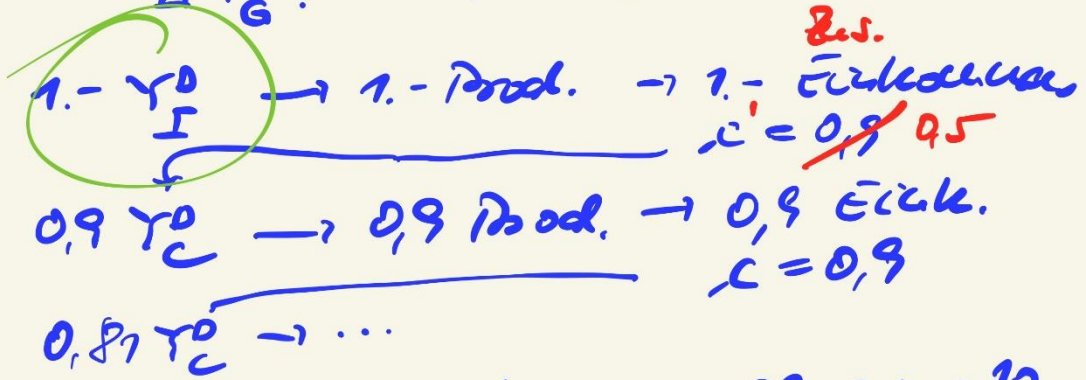 G.
Zus.
1.- Y^D_I → 1.- Prod. → 1.- Einkommen
c' = 0,9 0,5
0,9 Y^D_C → 0,9 Prod. → 0,9 Eink.
c = 0,9
0,81 Y^D_C → ...